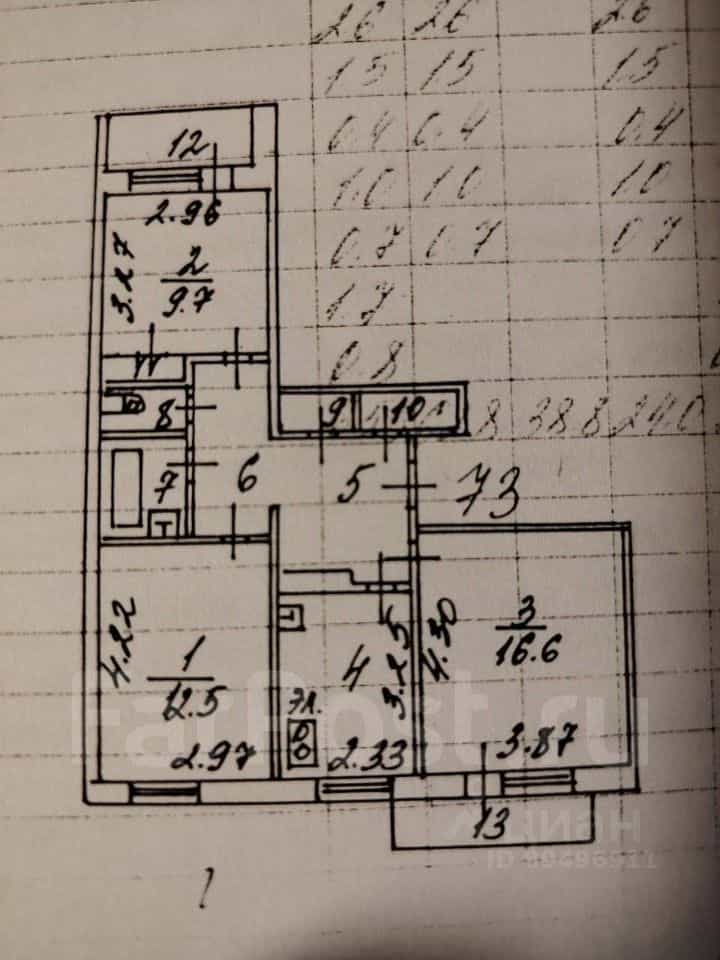 26 26 26
1.5 15 1.5
0.4 0.4 0.4
1.0 1.0 1.0
0.7 0.7 0.7
1.7
0.8
8 38.8 24.0
12
2.96
3.27
2
9.7
8
9
10
7
6
5
73
4.22
1
12.5
2.97
4
3.25
эл.
2.33
4.30
3
16.6
3.87
13
FarPost.ru
циан
1